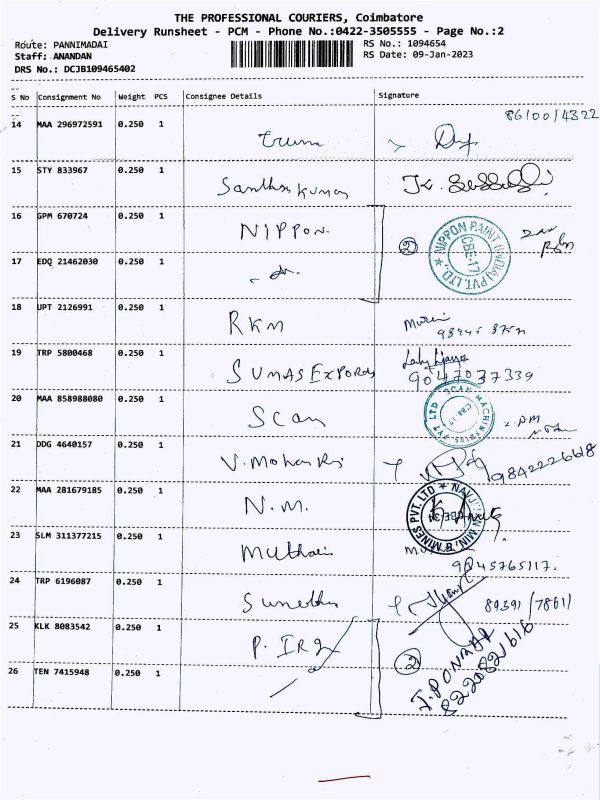 THE PROFESSIONAL COURIERS, Coimbatore
Delivery Runsheet - PCM - Phone No.:0422-3505555 - Page No.:2
Route: PANNIMADAI RS No.: 1094654
Staff: ANANDAN RS Date: 09-Jan-2023
DRS No.: DCJB109465402
S No Consignment No Weight PCS Consignee Details Signature
14 MAA 296972591 0.250 1
15 STY 833967 0.250 1 Santhosh Kumar
16 GPM 670724 0.250 1 NIPPON. 2 NIPPON PAINT (INDIA) PVT. LTD. CBE-17
17 EDQ 21462030 0.250 1
18 UPT 2126991 0.250 1 RKM
19 TRP 5800468 0.250 1 SUMAS EXPORTS 9047037339
20 MAA 858988080 0.250 1 Scan
21 DDG 4640157 0.250 1 V. Mohan Raj
22 MAA 281679185 0.250 1 N.M.
23 SLM 311377215 0.250 1 9845765117.
24 TRP 6196087 0.250 1 89391/7861/
25 KLK 8083542 0.250 1 2 8220821616
26 TEN 7415948 0.250 1